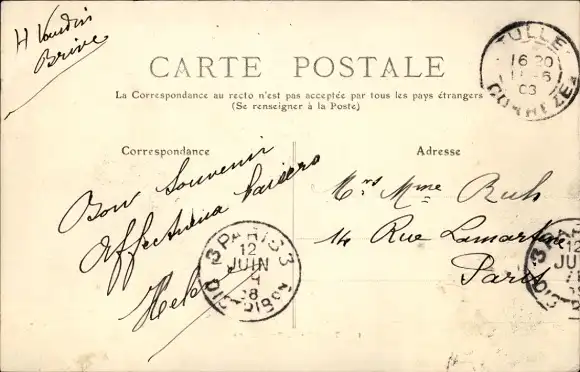 H Vaudin
Brive
TULLE
16 20
11-6
08
CORREZE
CARTE POSTALE
La Correspondance au recto n'est pas acceptée par tous les pays étrangers
(Se renseigner à la Poste)
Correspondance
Adresse
Bon Souvenir
Affectueux
Mrs Mme Ruh
14 Rue Lamartine
Paris
PARIS 3
12
JUIN
DISTRIBON
12